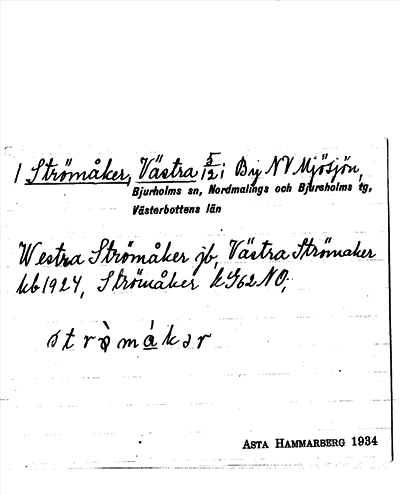 1 Strömåker, Västra 5/12; By NV Mjösjön,
Bjurholms sn, Nordmalings och Bjursholms tg,
Västerbottens län
Westra Strömåker jb, Västra Strömaker
kb 1924, Strömåker k G62 NO;
strömákər
ASTA HAMMARBERG 1934